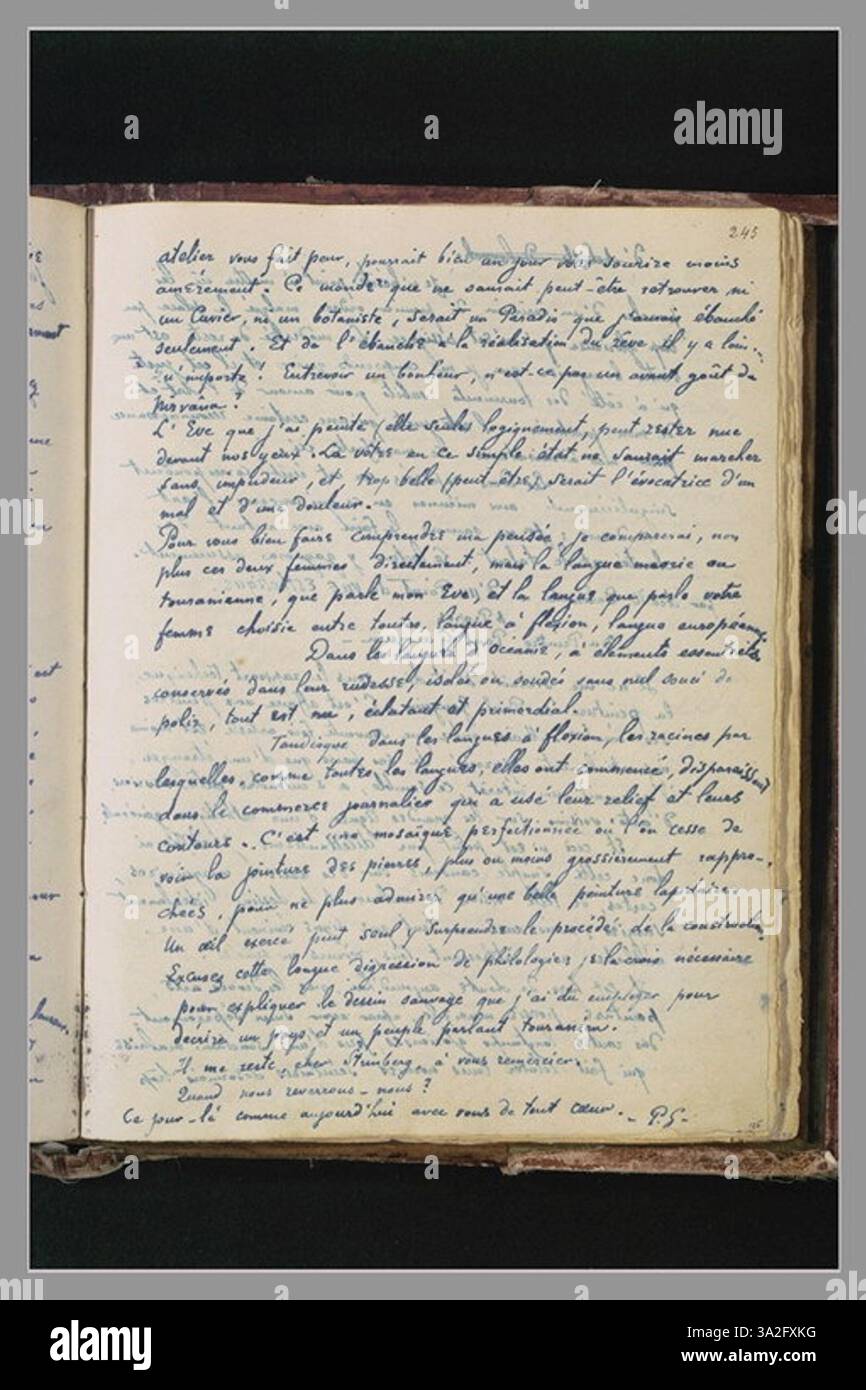 245
atelier vous fait peur, pourrait bien un jour vous sourire moins
amèrement. Ce monde que ne saurait peut-être retrouver ni
un Cuvier, ni un botaniste, serait un Paradis que j'aurais ébauché
seulement. Et de l'ébauche à la réalisation du rêve il y a loin...
qu'importe! Entrevoir un bonheur, n'est-ce pas un avant goût du
nirvâna?
L'Eve que j'ai peinte (elle seule) logiquement, peut rester nue
devant nos yeux. La votre en ce simple état ne saurait marcher
sans impudeur, et, trop belle (peut-être) serait l'évocatrice d'un
mal et d'une douleur.
Pour vous bien faire comprendre ma pensée, je comparerai, non
plus ces deux femmes directement, mais la langue maorie ou
touranienne, que parle mon Eve, et la langue que parle votre
femme choisie entre toutes, langue à flexion, langue européenne.
Dans les langues d'Océanie, à éléments essentiels
conservés dans leur rudesse, isolés ou soudés sans nul souci de
poli, tout est nu, éclatant et primordial.
Tandisque dans les langues à flexion, les racines par
lesquelles, comme toutes les langues, elles ont commencé, disparaissent
dans le commerce journalier qui a usé leur relief et leurs
contours. C'est une mosaïque perfectionnée où l'on cesse de
voir la jointure des pierres, plus ou moins grossièrement rappro-
chées, pour ne plus admirer qu'une belle peinture lapidaire.
Un œil exercé peut seul y surprendre le procédé de la construction.
Excusez cette longue digression de philologie; je la crois nécessaire
pour expliquer le dessin sauvage que j'ai dû employer pour
décrire un pays et un peuple parlant touranien.
Il me reste, cher Strinberg, à vous remercier.
Quand nous reverrons-nous?
Ce jour-là comme aujourd'hui avec vous de tout cœur. - P.G-
alamy
Image ID: 3A2FXKG
www.alamy.com